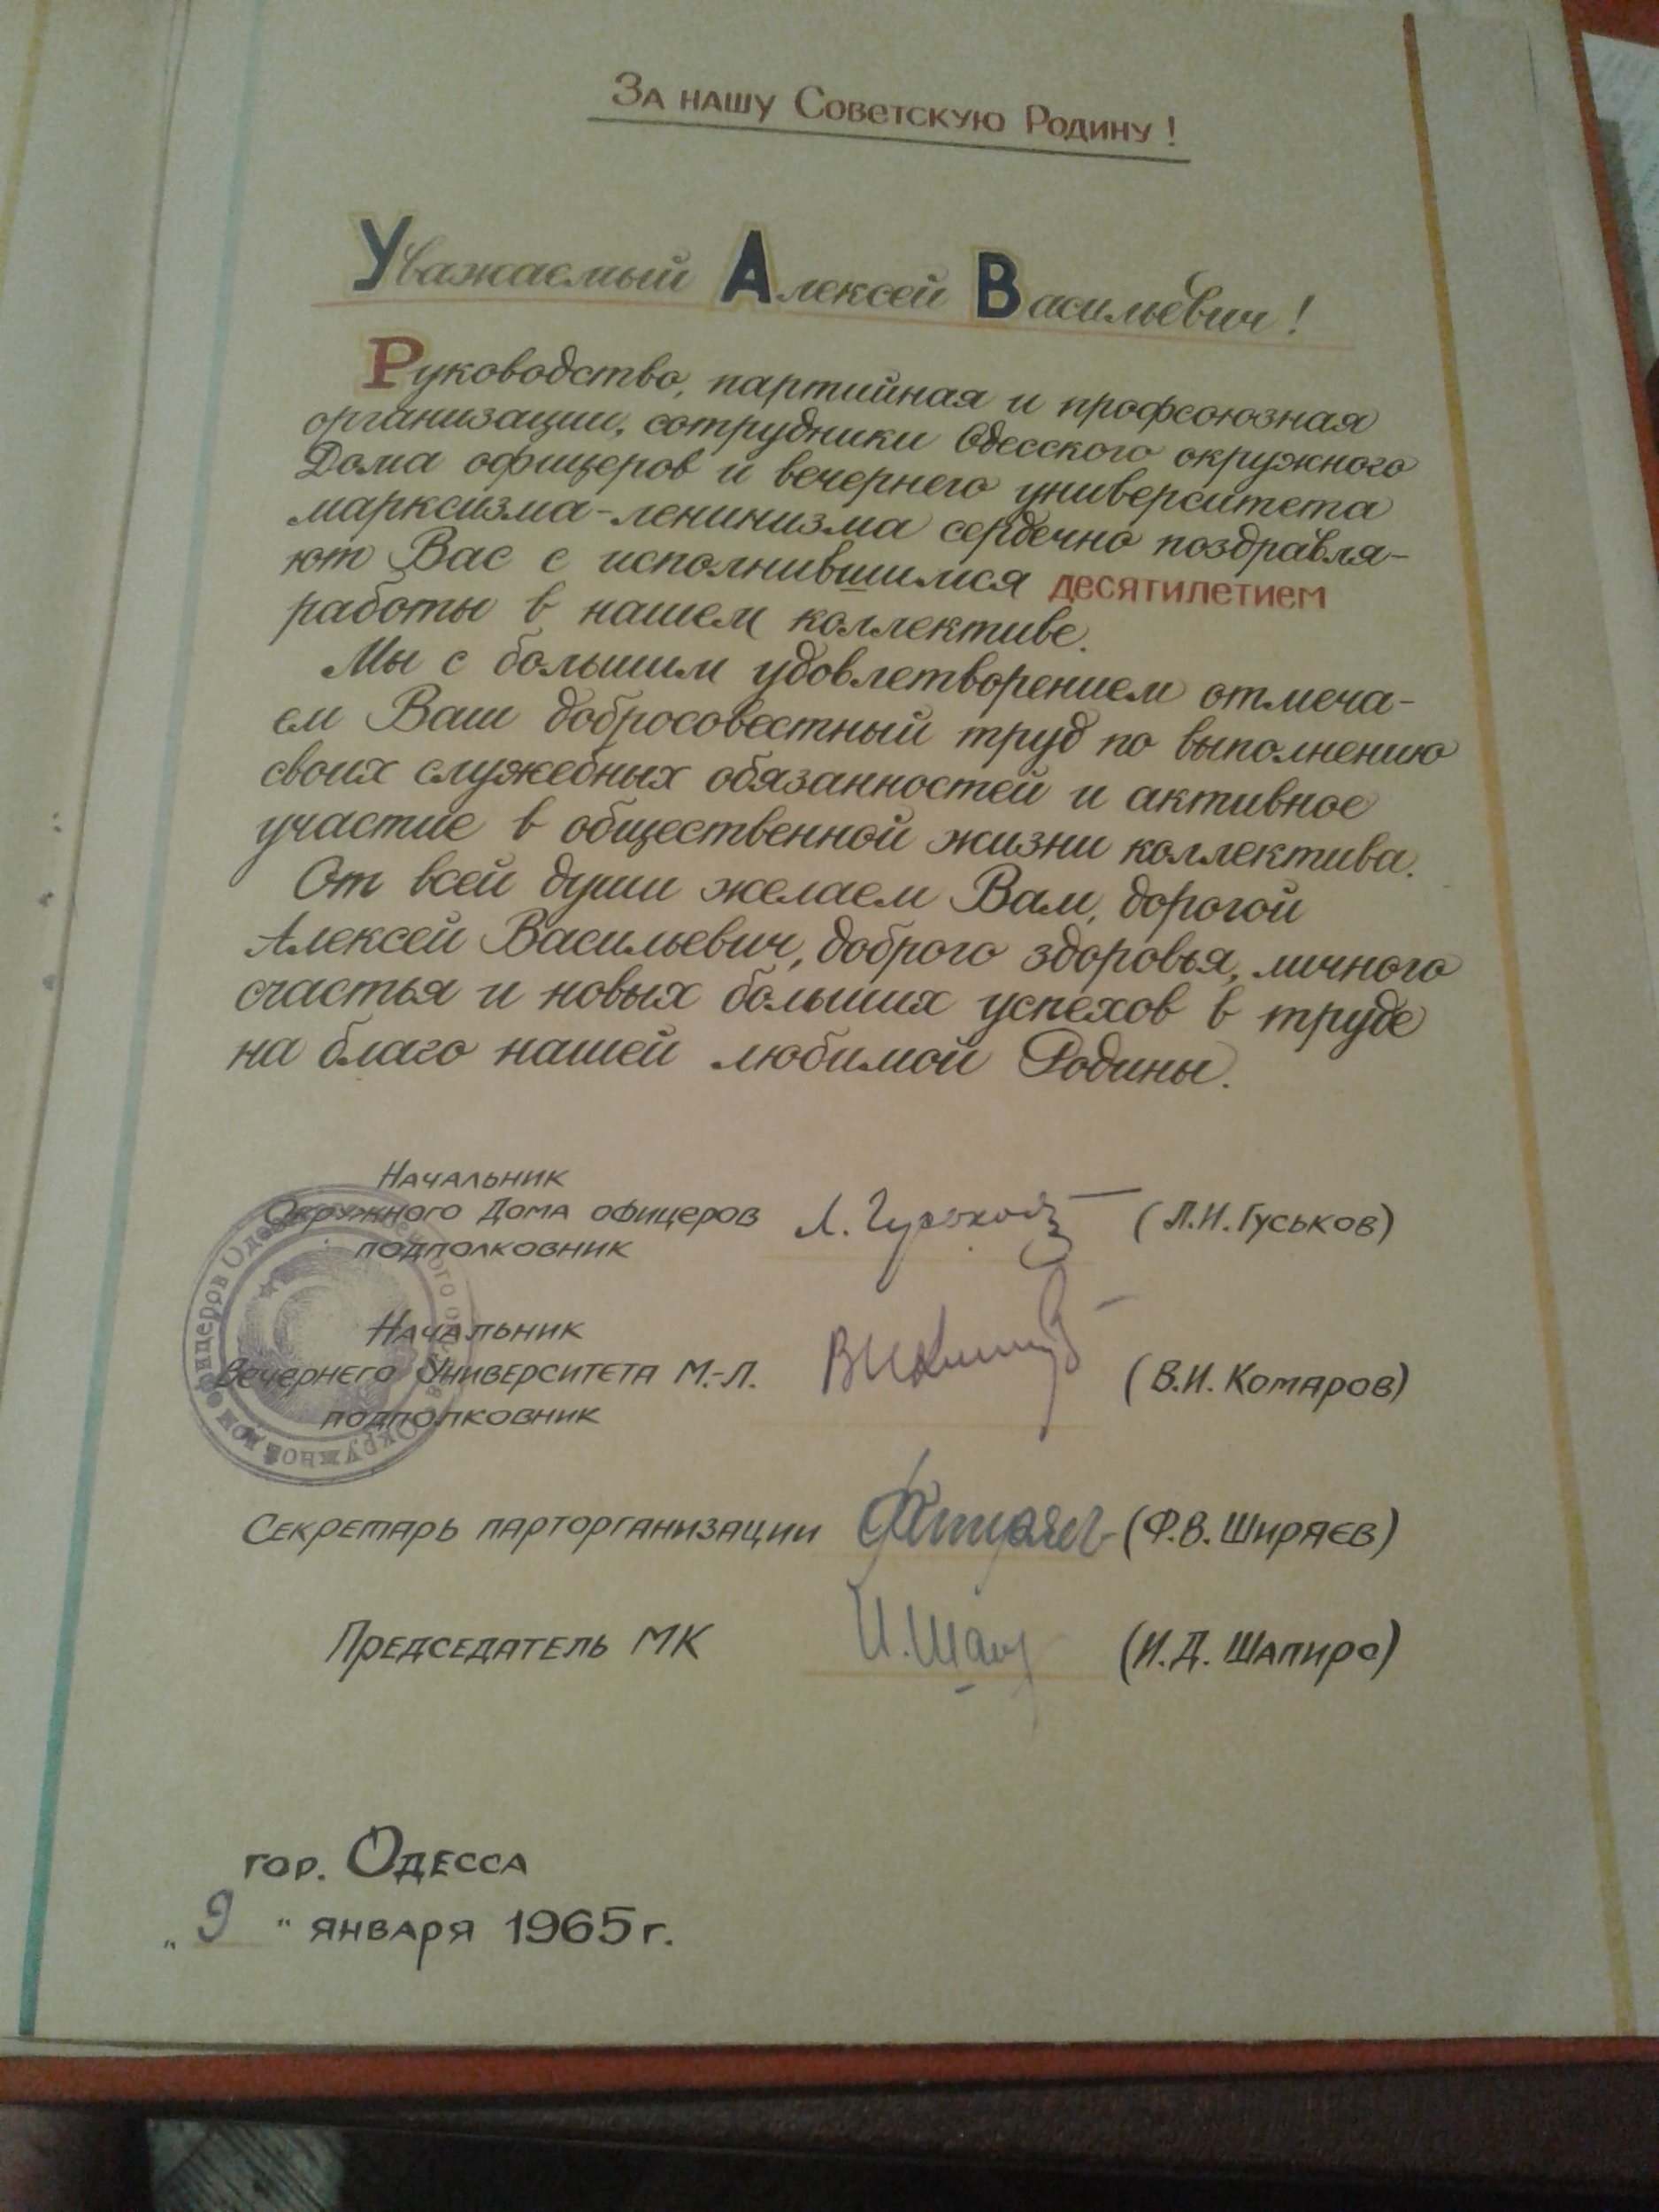 За нашу Советскую Родину!
Уважаемый Алексей Васильевич!
Руководство, партийная и профсоюзная
организации, сотрудники Одесского окружного
Дома офицеров и вечернего университета
марксизма-ленинизма сердечно поздравля-
ют Вас с исполнившимся десятилетием
работы в нашем коллективе.
Мы с большим удовлетворением отмеча-
ем Ваш добросовестный труд по выполнению
своих служебных обязанностей и активное
участие в общественной жизни коллектива.
От всей души желаем Вам, дорогой
Алексей Васильевич, доброго здоровья, личного
счастья и новых больших успехов в труде
на благо нашей любимой Родины.
Начальник
Окружного Дома офицеров Л. Гуськов (Л.И. Гуськов)
подполковник
Начальник
Вечернего Университета М.-Л. (В.И. Комаров)
подполковник
Секретарь парторганизации ФШиряев (Ф.В. Ширяев)
Председатель МК И. Шап (И.Д. Шапиро)
Окружной дом офицеров Одесского военного округа
гор. Одесса
„9" января 1965 г.